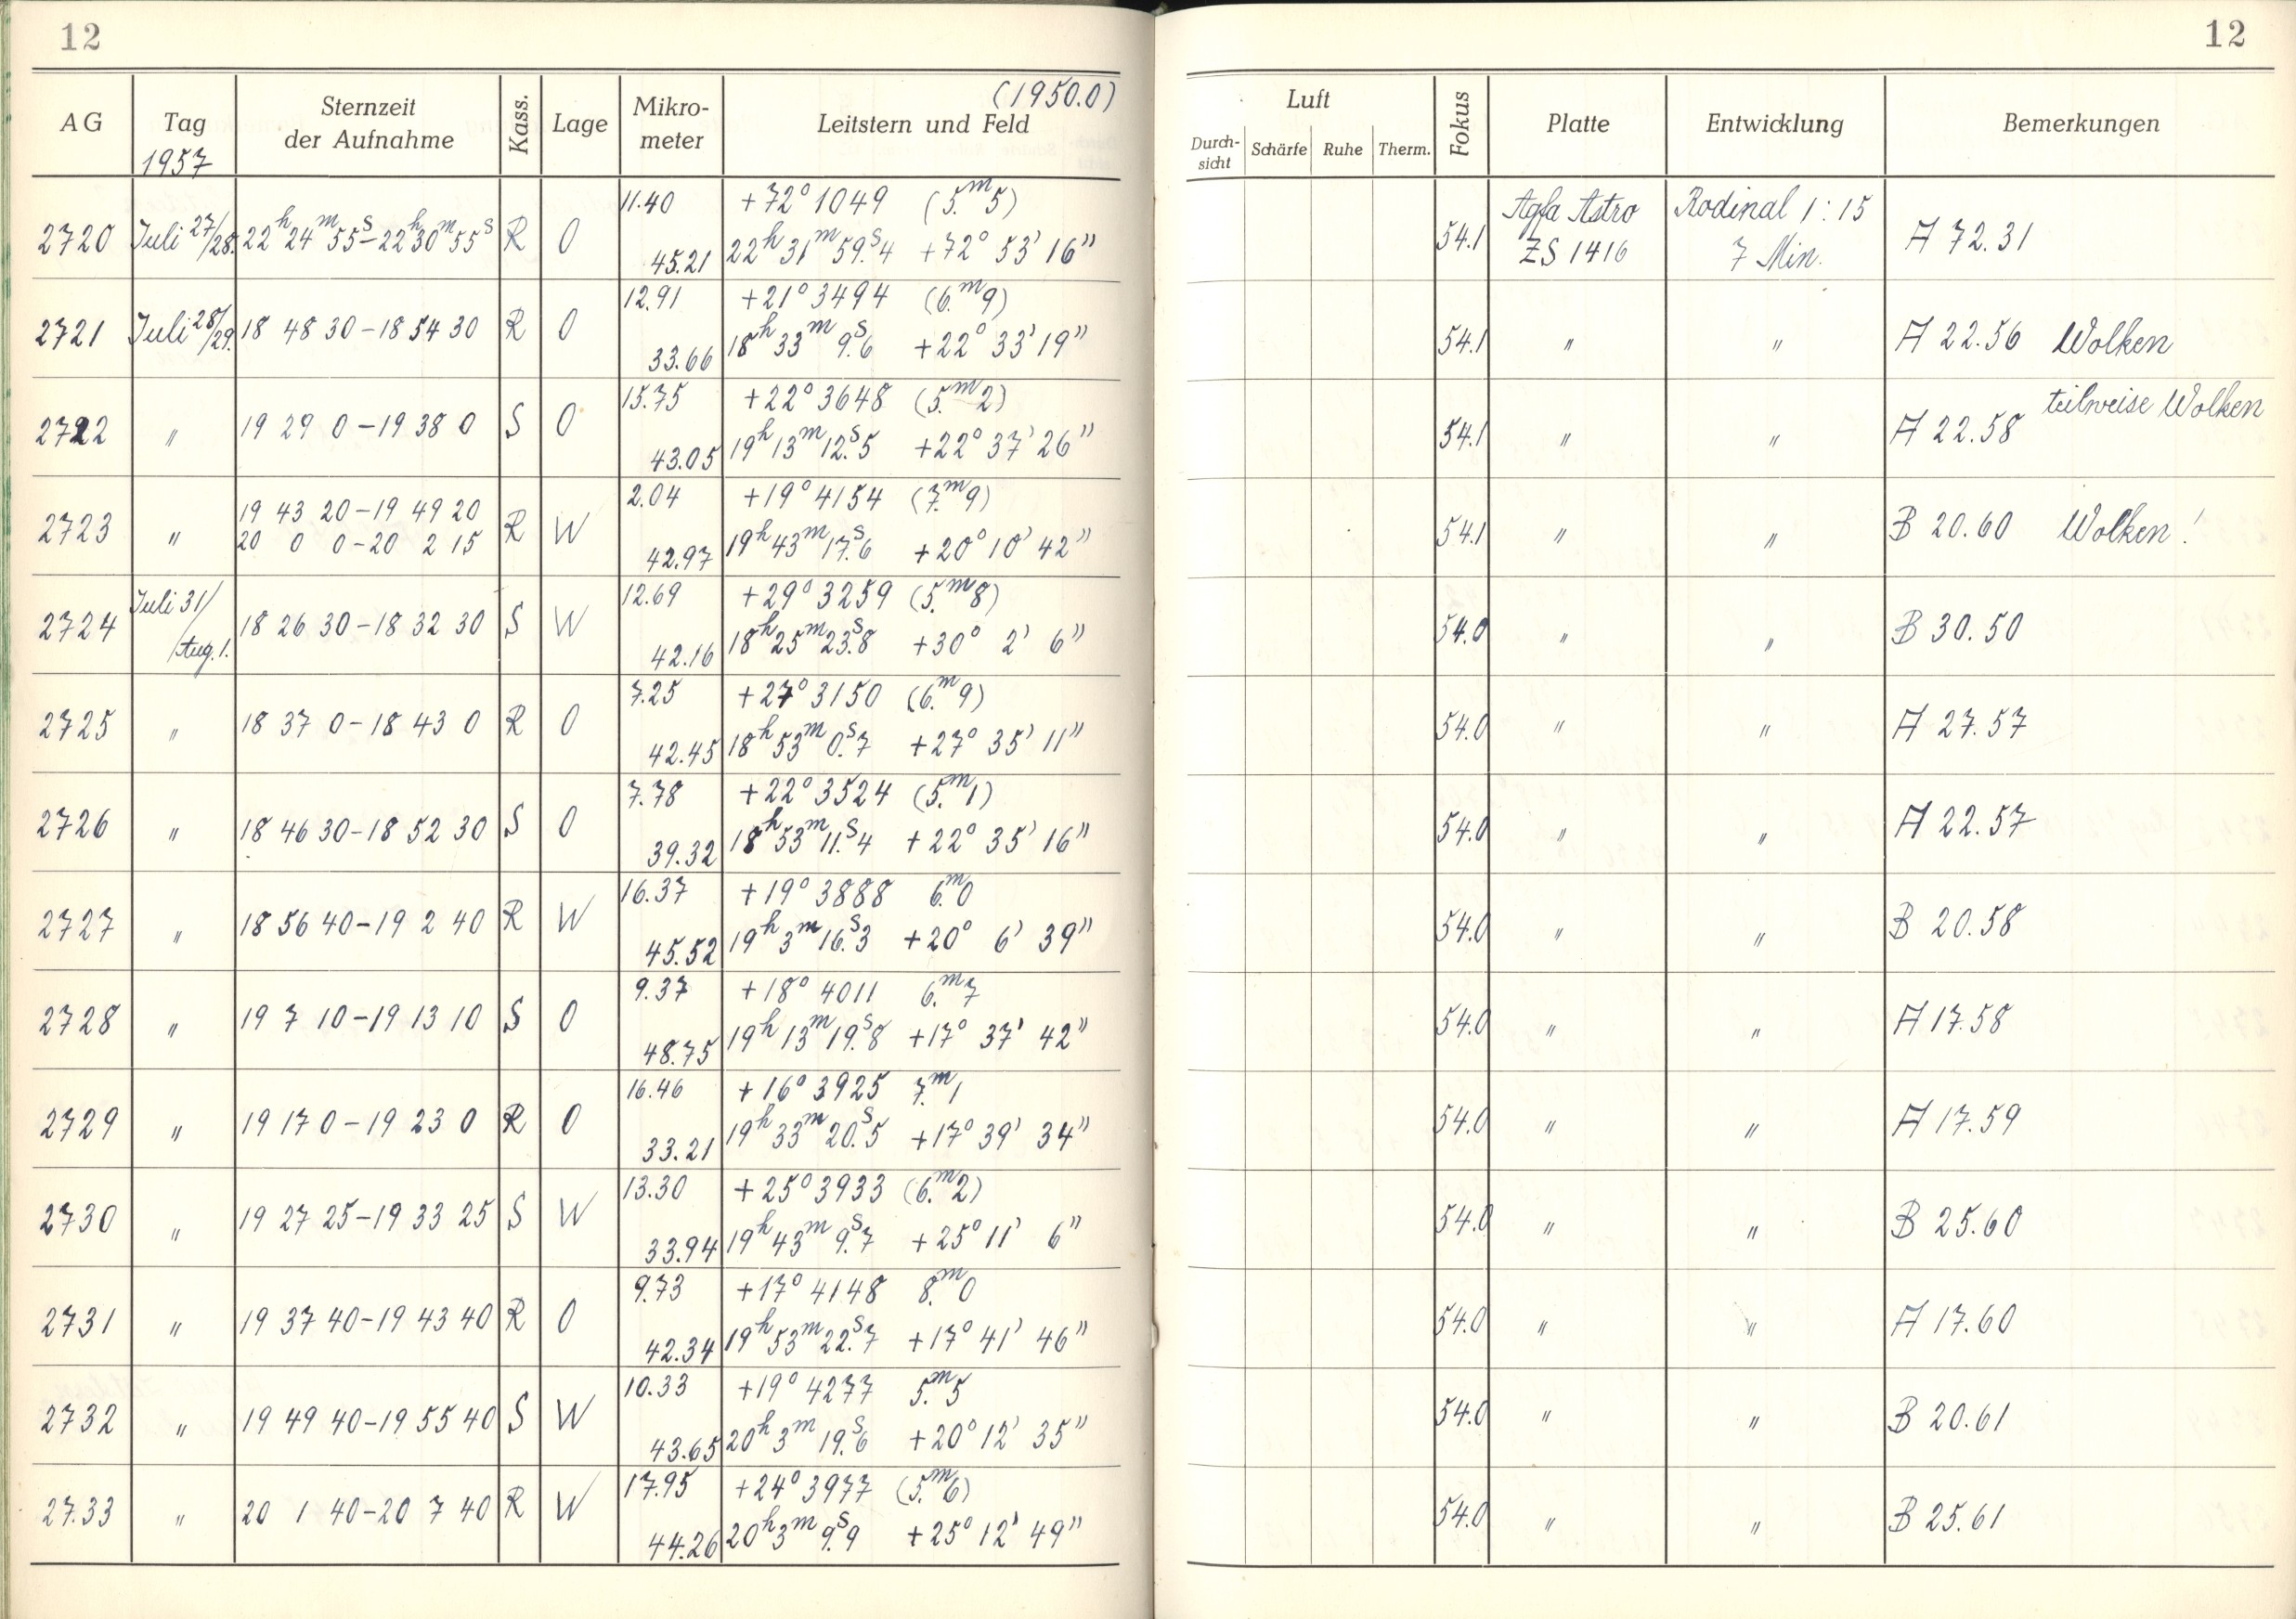 12
12
(1950.0)
AG Tag Sternzeit der Aufnahme Kass. Lage Mikro-meter Leitstern und Feld Luft Durch-sicht Schärfe Ruhe Therm. Fokus Platte Entwicklung Bemerkungen
1957
11.40 +72° 1049 (5.ᵐ5) Agfa Astro Rodinal 1:15
2720 Juli 27/28. 22ʰ24ᵐ55ˢ–22ʰ30ᵐ55ˢ R O 45.21 22ʰ 31ᵐ 59.ˢ4 +72° 53' 16" 54.1 ZS 1416 7 Min. A 72.31
12.91 +21° 3494 (6.ᵐ9)
2721 Juli 28/29. 18 48 30–18 54 30 R O 33.66 18ʰ 33ᵐ 9.ˢ6 +22° 33' 19" 54.1 " " A 22.56 Wolken
15.75 +22° 3648 (5.ᵐ2) teilweise Wolken
2722 " 19 29 0–19 38 0 S O 43.05 19ʰ 13ᵐ 12.ˢ5 +22° 37' 26" 54.1 " " A 22.58
19 43 20–19 49 20 2.04 +19° 4154 (7.ᵐ9)
2723 " 20 0 0–20 2 15 R W 42.97 19ʰ 43ᵐ 17.ˢ6 +20° 10' 42" 54.1 " " B 20.60 Wolken!
Juli 31/ 12.69 +29° 3259 (5.ᵐ8)
2724 Aug. 1. 18 26 30–18 32 30 S W 42.16 18ʰ 25ᵐ 23.ˢ8 +30° 2' 6" 54.0 " " B 30.50
7.25 +27° 3150 (6.ᵐ9)
2725 " 18 37 0–18 43 0 R O 42.45 18ʰ 53ᵐ 0.ˢ7 +27° 35' 11" 54.0 " " A 27.57
7.78 +22° 3524 (5.ᵐ1)
2726 " 18 46 30–18 52 30 S O 39.32 18ʰ 53ᵐ 11.ˢ4 +22° 35' 16" 54.0 " " A 22.57
16.37 +19° 3888 6.ᵐ0
2727 " 18 56 40–19 2 40 R W 45.52 19ʰ 3ᵐ 16.ˢ3 +20° 6' 39" 54.0 " " B 20.58
9.37 +18° 4011 6.ᵐ7
2728 " 19 7 10–19 13 10 S O 48.75 19ʰ 13ᵐ 19.ˢ8 +17° 37' 42" 54.0 " " A 17.58
16.46 +16° 3925 7.ᵐ1
2729 " 19 17 0–19 23 0 R O 33.21 19ʰ 33ᵐ 20.ˢ5 +17° 39' 34" 54.0 " " A 17.59
13.30 +25° 3933 (6.ᵐ2)
2730 " 19 27 25–19 33 25 S W 33.94 19ʰ 43ᵐ 9.ˢ7 +25° 11' 6" 54.0 " " B 25.60
9.73 +17° 4148 8.ᵐ0
2731 " 19 37 40–19 43 40 R O 42.34 19ʰ 53ᵐ 22.ˢ7 +17° 41' 46" 54.0 " " A 17.60
10.33 +19° 4277 5.ᵐ5
2732 " 19 49 40–19 55 40 S W 43.65 20ʰ 3ᵐ 19.ˢ6 +20° 12' 35" 54.0 " " B 20.61
17.95 +24° 3977 (5.ᵐ6)
27.33 " 20 1 40–20 7 40 R W 44.26 20ʰ 3ᵐ 9.ˢ9 +25° 12' 49" 54.0 " " B 25.61